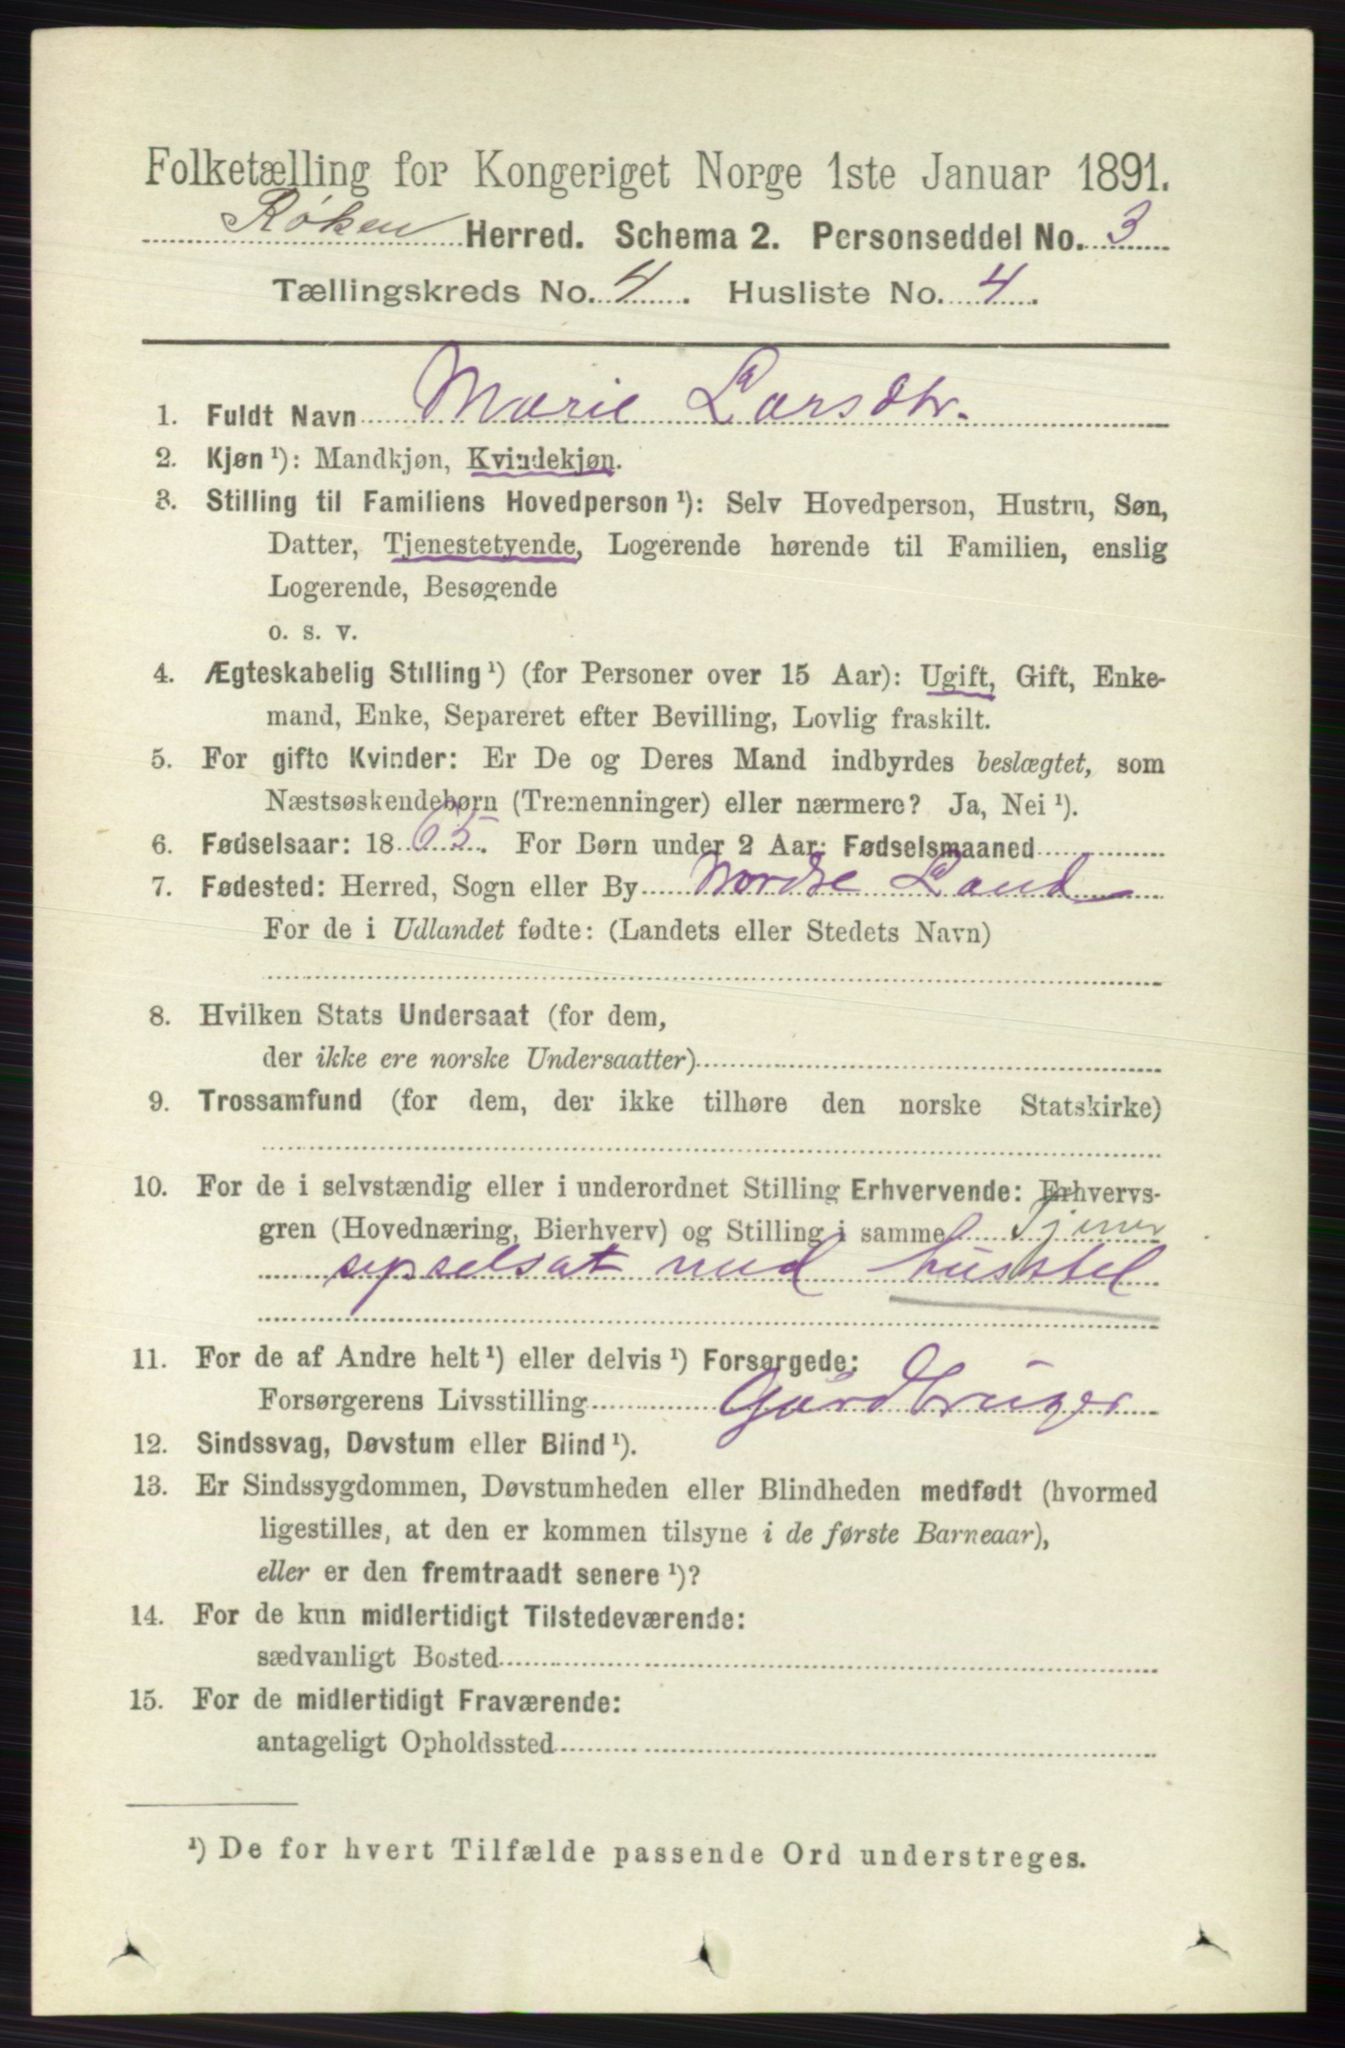 Folketælling for Kongeriget Norge 1ste Januar 1891.
Røken Herred. Schema 2. Personseddel No. 3
Tællingskreds No. 4. Husliste No. 4.
1. Fuldt Navn Marie Larsdtr.
2. Kjøn ¹): Mandkjøn, Kvindekjøn.
3. Stilling til Familiens Hovedperson ¹): Selv Hovedperson, Hustru, Søn,
Datter, Tjenestetyende, Logerende hørende til Familien, enslig
Logerende, Besøgende
o. s. v.
4. Ægteskabelig Stilling ¹) (for Personer over 15 Aar): Ugift, Gift, Enke-
mand, Enke, Separeret efter Bevilling, Lovlig fraskilt.
5. For gifte Kvinder: Er De og Deres Mand indbyrdes beslægtet, som
Næstsøskendebørn (Tremenninger) eller nærmere? Ja, Nei ¹).
6. Fødselsaar: 1865. For Børn under 2 Aar: Fødselsmaaned
7. Fødested: Herred, Sogn eller By Nordre Land
For de i Udlandet fødte: (Landets eller Stedets Navn)
8. Hvilken Stats Undersaat (for dem,
der ikke ere norske Undersaatter)
9. Trossamfund (for dem, der ikke tilhøre den norske Statskirke)
10. For de i selvstændig eller i underordnet Stilling Erhvervende: Erhvervs-
gren (Hovednæring, Bierhverv) og Stilling i samme Tjener
sysselsat med husstel
11. For de af Andre helt ¹) eller delvis ¹) Forsørgede:
Forsørgerens Livsstilling Gårdbruger
12. Sindssvag, Døvstum eller Blind ¹).
13. Er Sindssygdommen, Døvstumheden eller Blindheden medfødt (hvormed
ligestilles, at den er kommen tilsyne i de første Barneaar),
eller er den fremtraadt senere ¹)?
14. For de kun midlertidigt Tilstedeværende:
sædvanligt Bosted
15. For de midlertidigt Fraværende:
antageligt Opholdssted
¹) De for hvert Tilfælde passende Ord understreges.